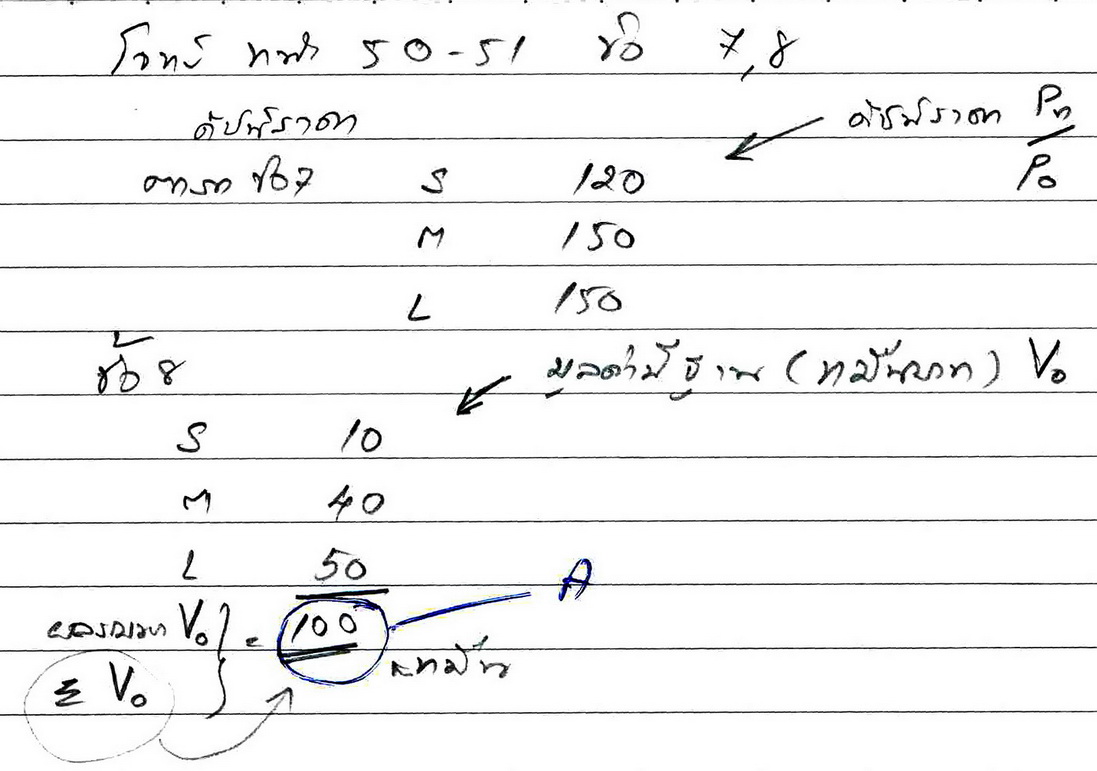 โจทย์ หน้า 50-51 ข้อ 7,8
ดัชนีราคา
ดัชนีราคา Pn
จาก ข้อ7 S 120 Po
M 150
L 150
ข้อ 8 มูลค่าปีฐาน (หมื่นบาท) Vo
S 10
M 40
L 50
A
ผลรวม Vo = 100
Σ Vo หมื่น